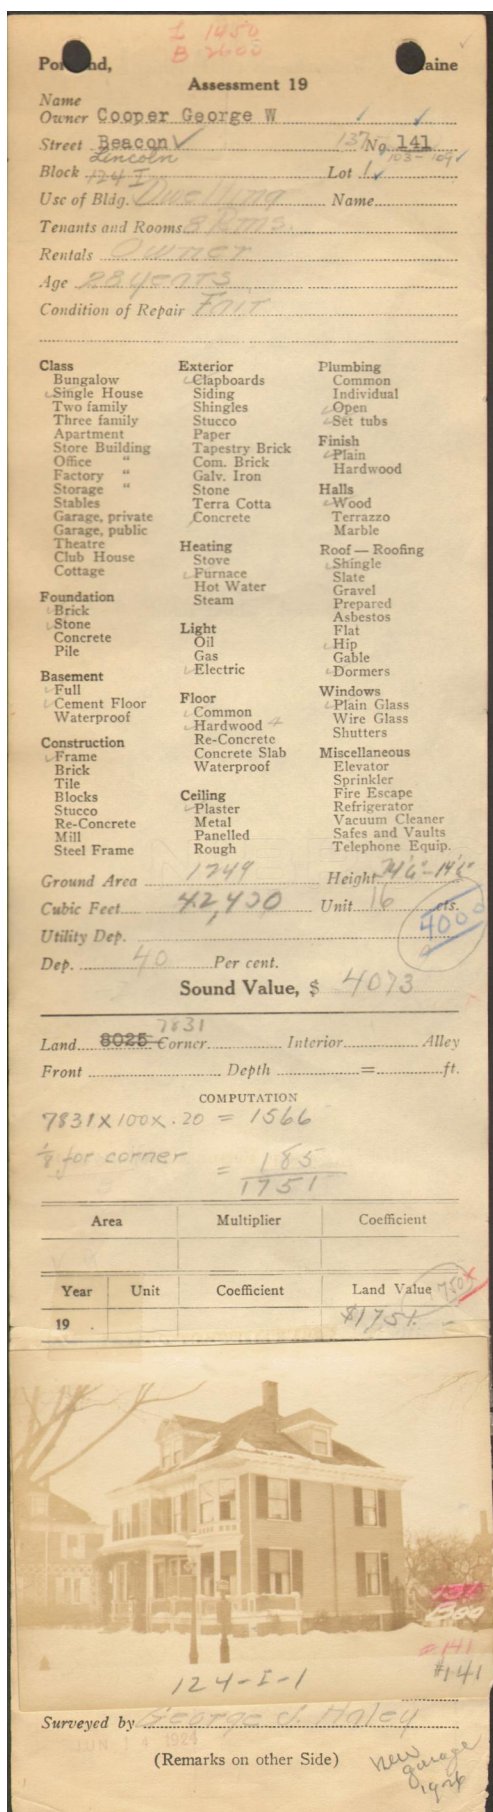 L 1450
B 2600
Portland, Maine
Assessment 19
Name
Owner Cooper George W
Street Beacon 137 No. 141
Lincoln 103-109
Block 124 I Lot 1
Use of Bldg. Dwelling Name
Tenants and Rooms 8 Rms.
Rentals Owner
Age 28 years
Condition of Repair Fair
Class
Bungalow
Single House
Two family
Three family
Apartment
Store Building
Office "
Factory "
Storage "
Stables
Garage, private
Garage, public
Theatre
Club House
Cottage
Foundation
Brick
Stone
Concrete
Pile
Basement
Full
Cement Floor
Waterproof
Construction
Frame
Brick
Tile
Blocks
Stucco
Re-Concrete
Mill
Steel Frame
Exterior
Clapboards
Siding
Shingles
Stucco
Paper
Tapestry Brick
Com. Brick
Galv. Iron
Stone
Terra Cotta
Concrete
Heating
Stove
Furnace
Hot Water
Steam
Light
Oil
Gas
Electric
Floor
Common
Hardwood 4
Re-Concrete
Concrete Slab
Waterproof
Ceiling
Plaster
Metal
Panelled
Rough
Plumbing
Common
Individual
Open
Set tubs
Finish
Plain
Hardwood
Halls
Wood
Terrazzo
Marble
Roof — Roofing
Shingle
Slate
Gravel
Prepared
Asbestos
Flat
Hip
Gable
Dormers
Windows
Plain Glass
Wire Glass
Shutters
Miscellaneous
Elevator
Sprinkler
Fire Escape
Refrigerator
Vacuum Cleaner
Safes and Vaults
Telephone Equip.
Ground Area 1249 Height 34'6"-14'6"
Cubic Feet 42,430 Unit 16 cts.
4000
Utility Dep.
Dep. 40 Per cent.
Sound Value, $ 4073
7831
Land 8025 Corner Interior Alley
Front Depth = ft.
COMPUTATION
7831 X 100 X .20 = 1566
1/8 for corner = 185
1751
Area Multiplier Coefficient
Year Unit Coefficient Land Value
19 $1751.
#141
#141
124-I-1
Surveyed by George J. Haley
JUN 14 1924
(Remarks on other Side)
New
garage
1926